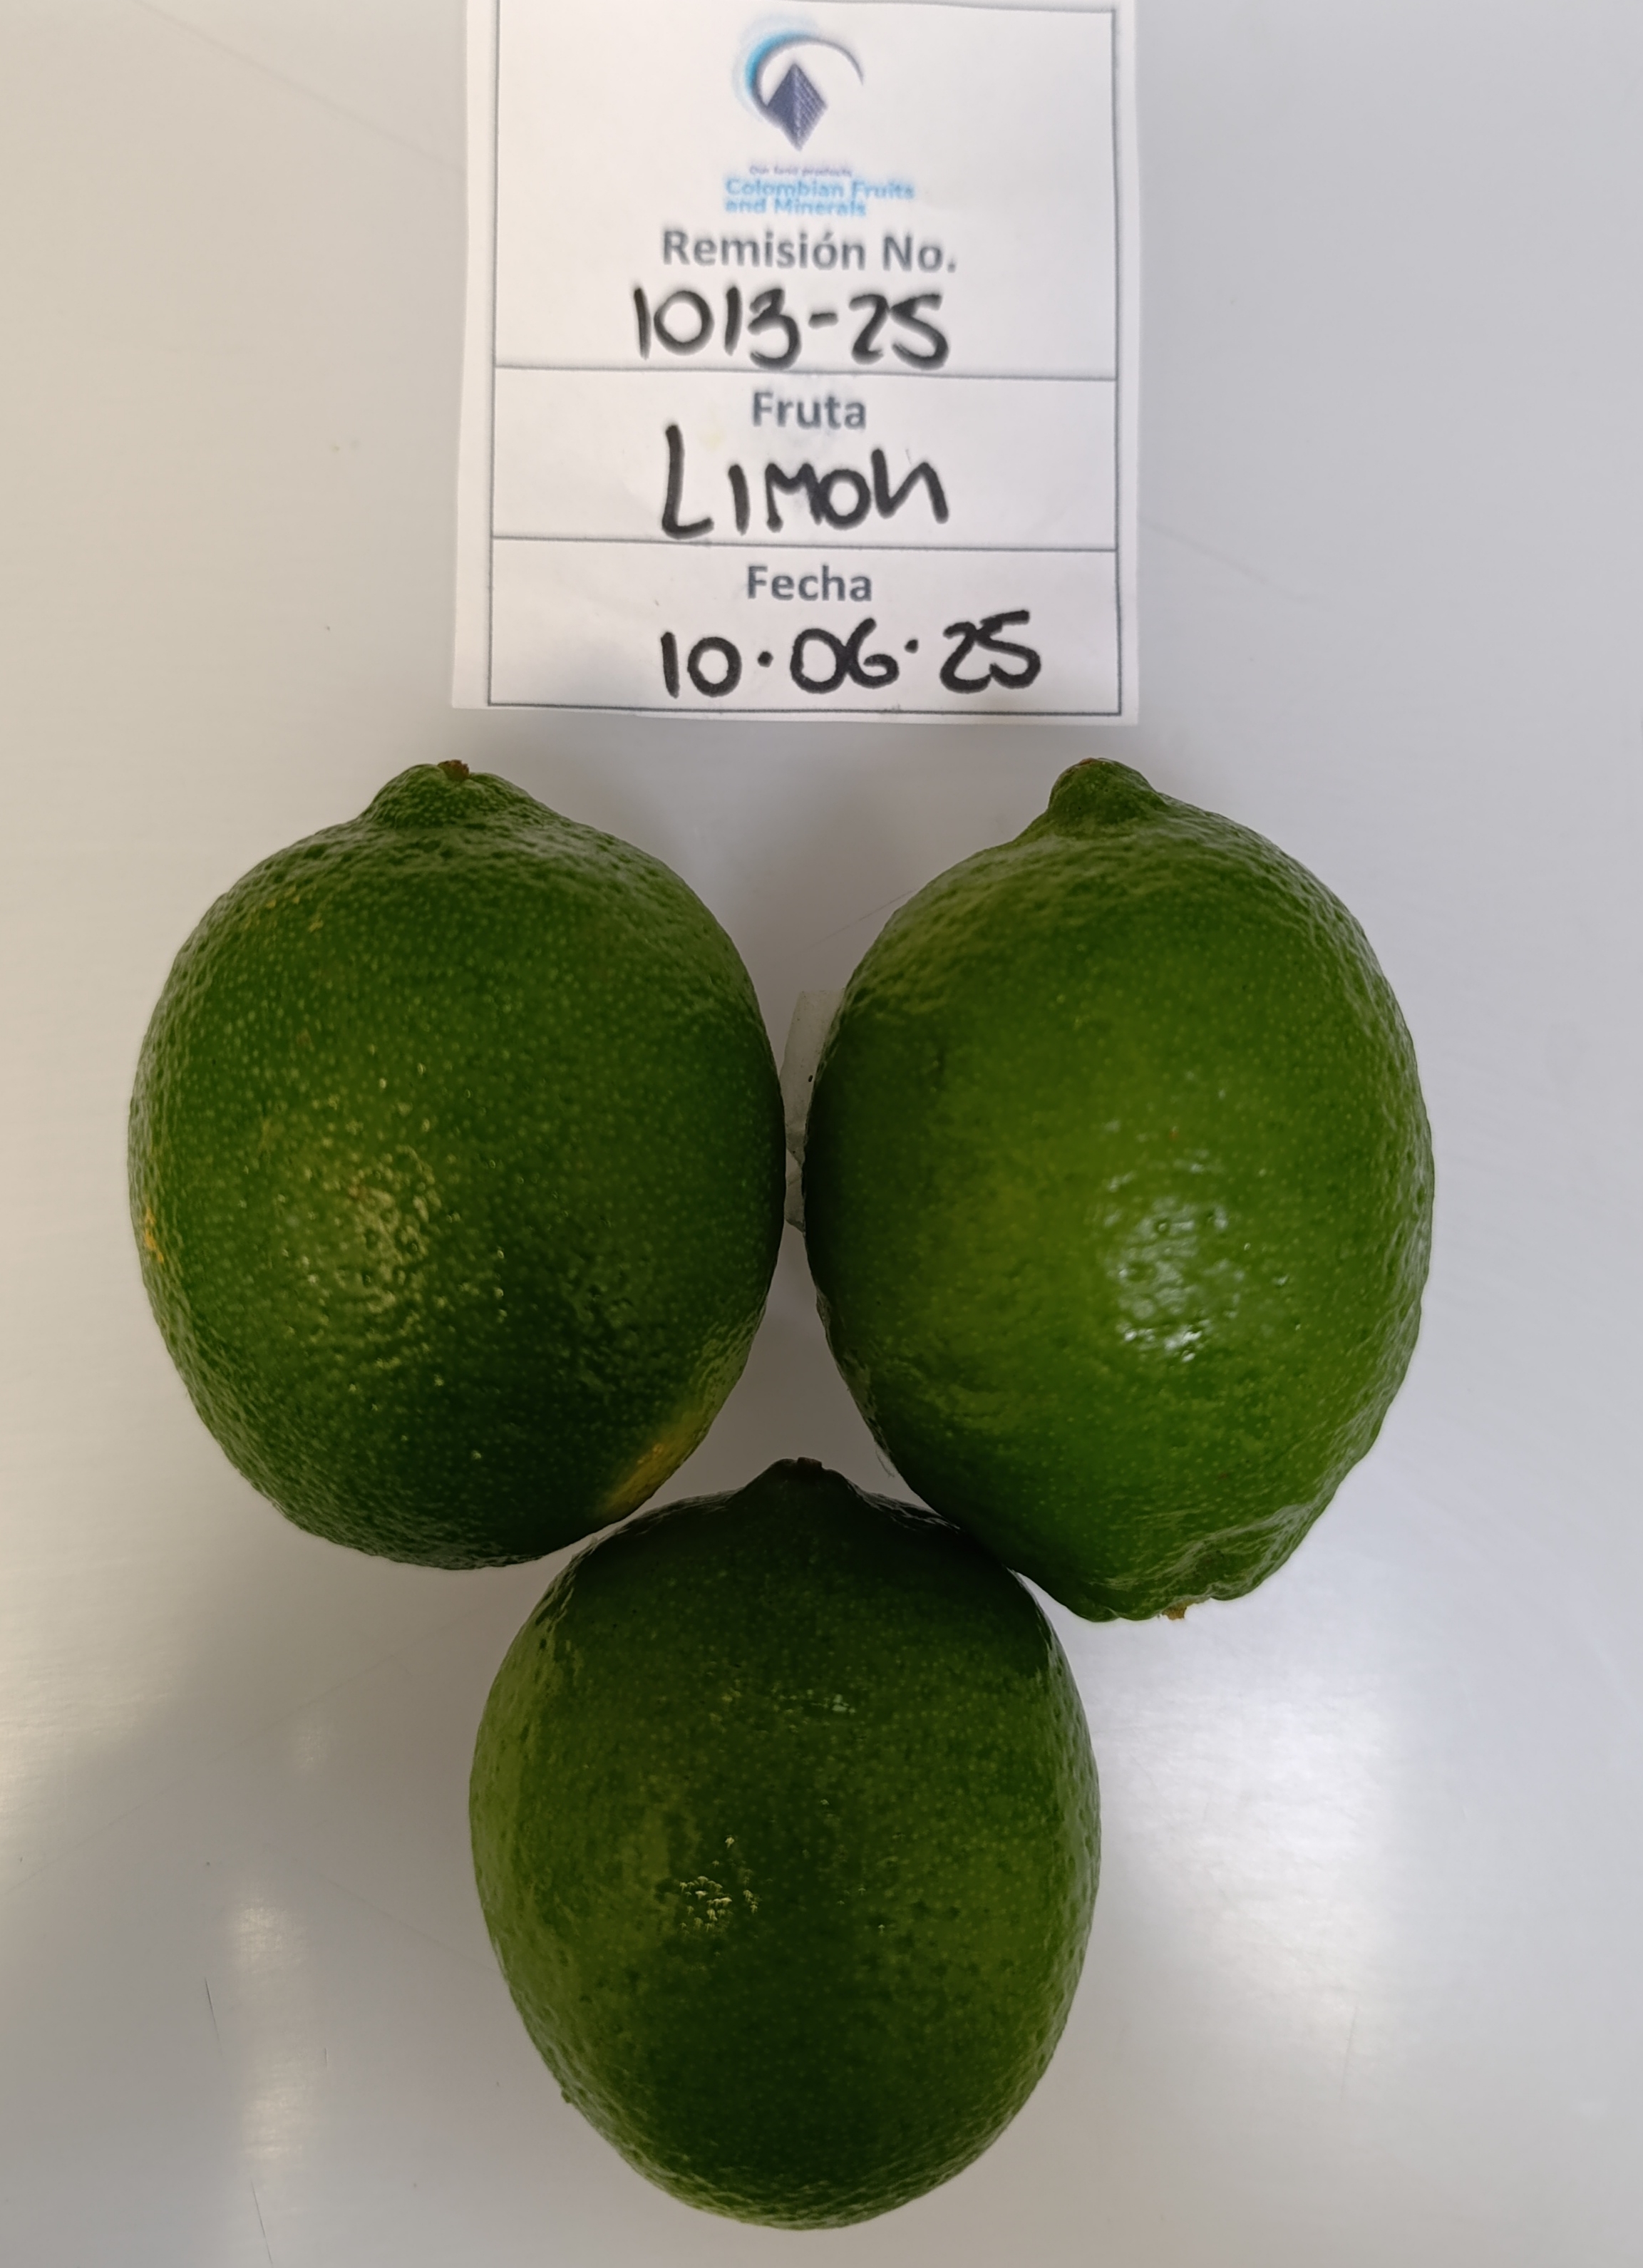 Our best products
Colombian Fruits
and Minerals
Remisión No.
1013-25
Fruta
LIMON
Fecha
10·06·25